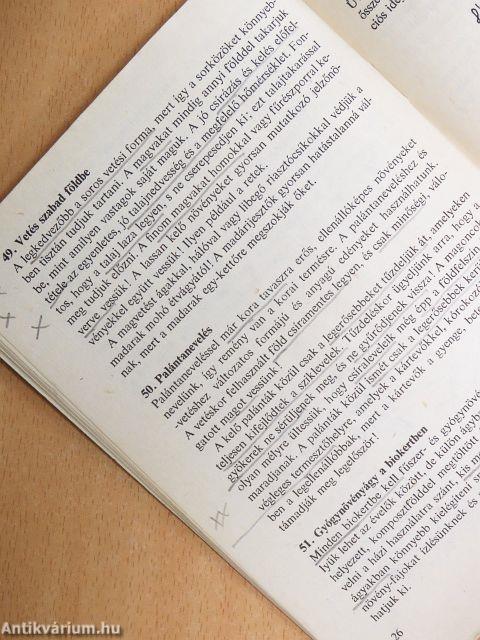 49. Vetés szabad földbe
A legkedvezőbb a soros vetési forma, mert így a sorközöket könnyeb-
ben tisztán tudjuk tartani. A magvakat mindig annyi földdel takarjuk
be, mint amilyen vastagok saját maguk. A jó csírázás és kelés előfel-
tétele az egyenletes, jó talajnedvesség és a megfelelő hőmérséklet. Fon-
tos, hogy a talaj laza legyen, s ne cserepesedjen ki; ezt talajtakarással
meg tudjuk előzni. A apró magvakat homokkal vagy fűrészporral ke-
verve vessük! A lassan kelő növényeket gyorsan mutatkozó jelzőnö-
vényekkel együtt vessük. Ilyen például a retek.
A magvetést ágakkal, hálóval vagy libegő fiasztócsíkokkal védjük a
madarak mohó étvágyától! A madárijesztők gyorsan hatástalanná vál-
nak, mert a madarak egy-kettőre megszokják őket.
50. Palántanevelés
Palántaneveléssel már kora tavaszra erős, ellenállóképes növényeket
nevelünk, így remény van a korai termésre. A palántaneveléshez és
-vetéshez változatos formájú és anyagú edényeket használhatunk.
A vetéskor felhasznált föld csíramentes legyen, és csak minőségi, válo-
gatott magot vessünk!
A kelő palánták közül csak a legerősebbeket tűzdeljük át, amelyeken
teljesen kifejlődtek a sziklevelek. Tűzdeléskor ügyeljünk arra, hogy a
gyökerek ne sérüljenek meg, és ne gyűrődjenek vissza! A magoncokat
olyan mélyre ültessük, hogy csíraleveleik még épp a földfelszín
maradjanak. A palánták közül ismét csak a legerősebbek kerüljenek
végleges termesztőhelyre, amelyek a kártevőkkel,
ben a legellenállóbbak, mert a kártevők a gyenge, beteg
támadják meg legelőször!
51. Gyógynövényágy a biokertben
Minden biokertbe kell fűszer- és gyógynövény
lyük lehet az évelők között, de külön ágyban
helyezett, komposztfölddel megtöltött
velni a házi használatra szánt, kis
ágyakban könnyebb kielégíteni
növény-fajokat ízlésünknek és
hatjuk ki.
26
össze
eiós
Antikvárium.hu